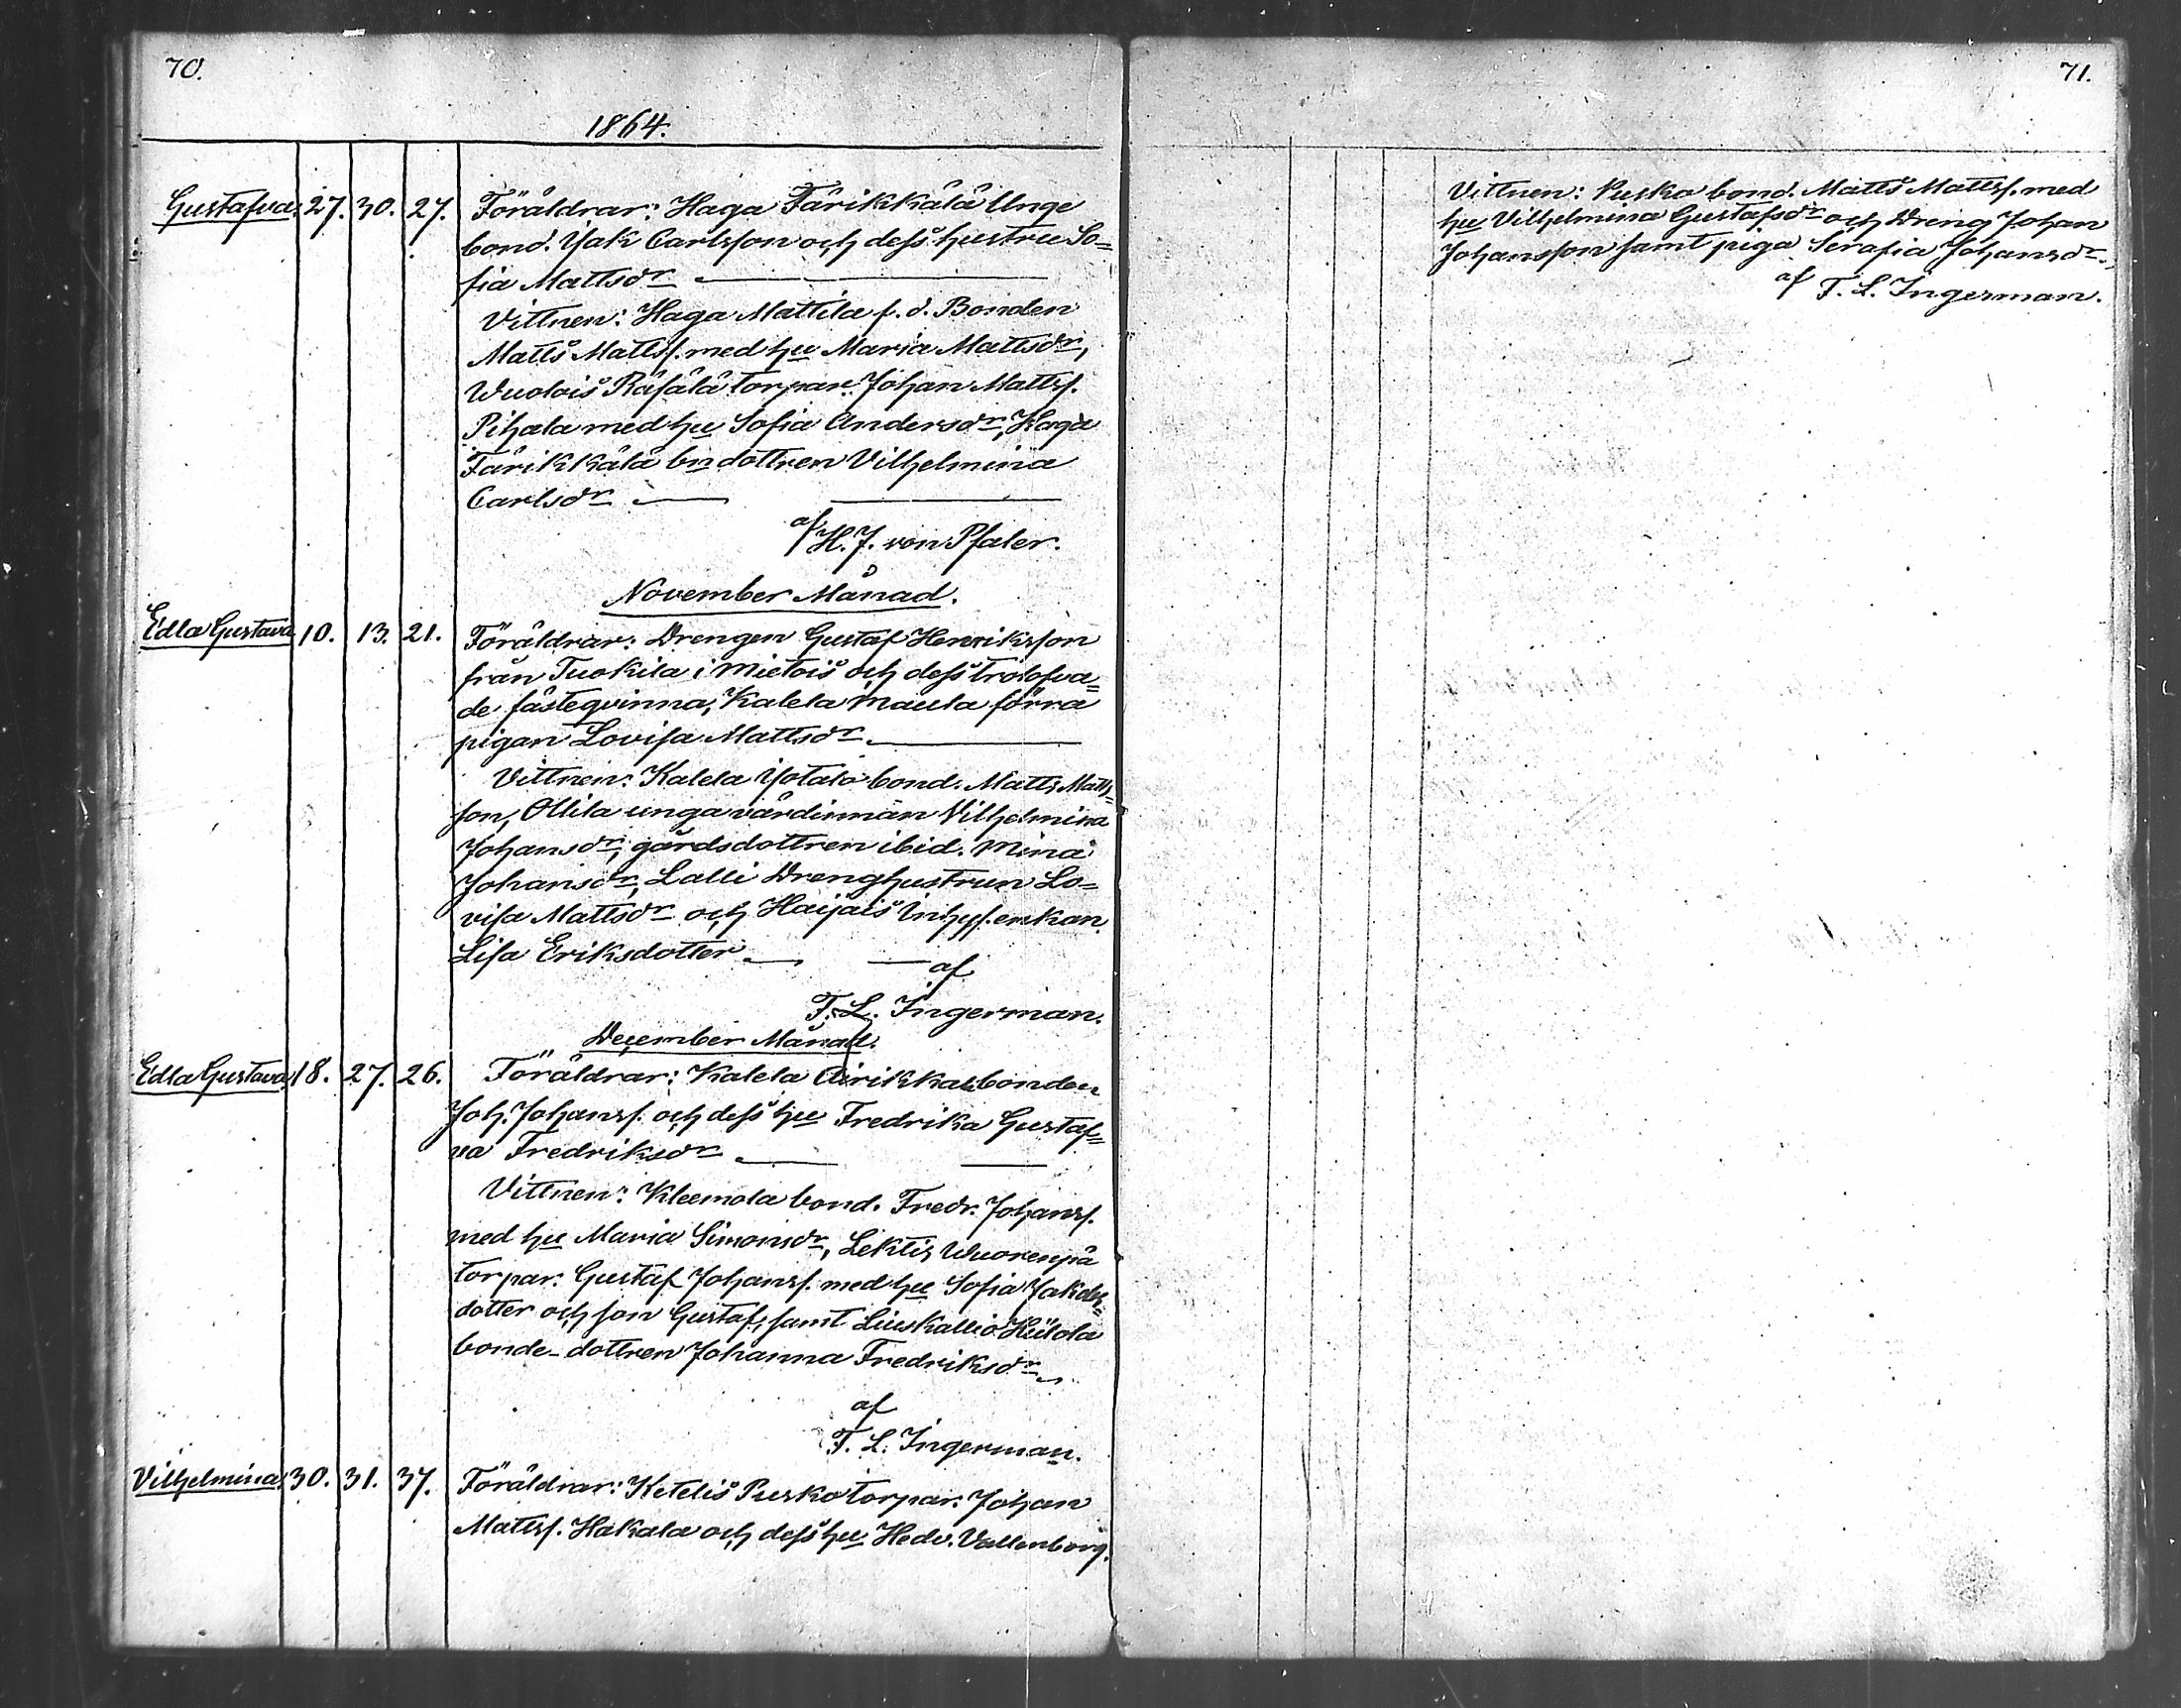 70.
1864.
Gustafva. 27. 30. 27. Föräldrar: Haga Färikkälä Unge
bond. Isak Carlsson och dess hustru So=
fia Mattsdr
Vittnen: Haga Mattila f. d. Bonden
Matts Mattss. med hu Maria Mattsdr,
Wuolois Räfälä torpar. Johan Mattss.
Pihala med hu Sofia Andersdr, Haga
Färikkälä bndottren Vilhelmina
Carlsdr
af H. J. von Pfaler.
November Månad.
Edla Gustava 10. 13. 21. Föräldrar: Drengen Gustaf Henriksson
från Tuokila i Mietois och dess trolofva=
de fästeqvinna, Kalela Maula förra
pigan Lovisa Mattsdr
Vittnen: Kalela Isotalo bond. Matts Matts=
son, Ollila unga värdinnan Vilhelmina
Johansdr, gårdsdottren ibid. Mina
Johansdr, Lalli Drenghustrun Lo=
visa Mattsdr och Haijais Inhys.enkan
Lisa Eriksdotter
af
F. L. Ingerman.
December Månad.
Edla Gustava 18. 27. 26. Föräldrar: Kalela Airikkala bonden
Joh. Johanss. och dess hu Fredrika Gustaf=
va Fredriksdr
Vittnen: Kleemola bond. Fredr. Johanss.
med hu Maria Simonsdr, Lektis Wuorenpä
torpar. Gustaf Johanss. med hu Sofia Jakobs=
dotter och son Gustaf, samt Liuskallio Heilola
bonde-dottren Johanna Fredriksdr
af
F. L. Ingerman.
Vilhelmina 30. 31. 37. Föräldrar: Ketelis Pusko torpar. Johan
Mattss. Hakala och dess hu Hedv. Vallenborg.
71.
Vittnen: Pusko bond. Matts Mattss. med
hu Vilhelmina Gustafsdr och Dreng Johan
Johansson samt piga Serafia Johansdr.
af F. L. Ingerman.